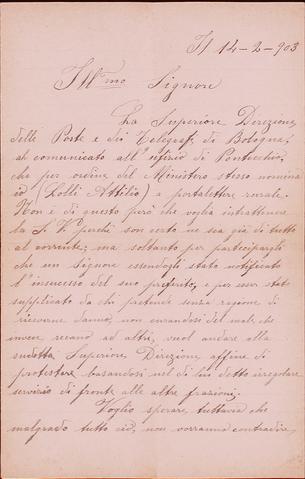 Il 14-2-903
Ill.mo Signore
La Superiore Direzione
delle Poste e dei Telegrafi di Bologna,
ha comunicato all'ufficio di Ponticchio,
che per ordine del Ministero stesso nomina
io (Lolli Attilio) a portalettere rurale.
Non è di questo però che voglia intrattenere
la S. V. perchè son certo ne sia già di tutto
al corrente; ma soltanto per parteciparle
che un Signore essendogli stato notificato
l'insucesso del suo preferito, e per esser stato
supplicato da chi pretende senza ragione di
riceverne danno, non curandosi del male che
invece recano ad altri, vuol andare alla
sudetta Superiore Direzione affine di
protestare basandosi nel di lui detto irregolare
servizio di fronte alle altre frazioni.
Voglio sperare tuttavia che
malgrado tutto ciò, non vorranno contradire,